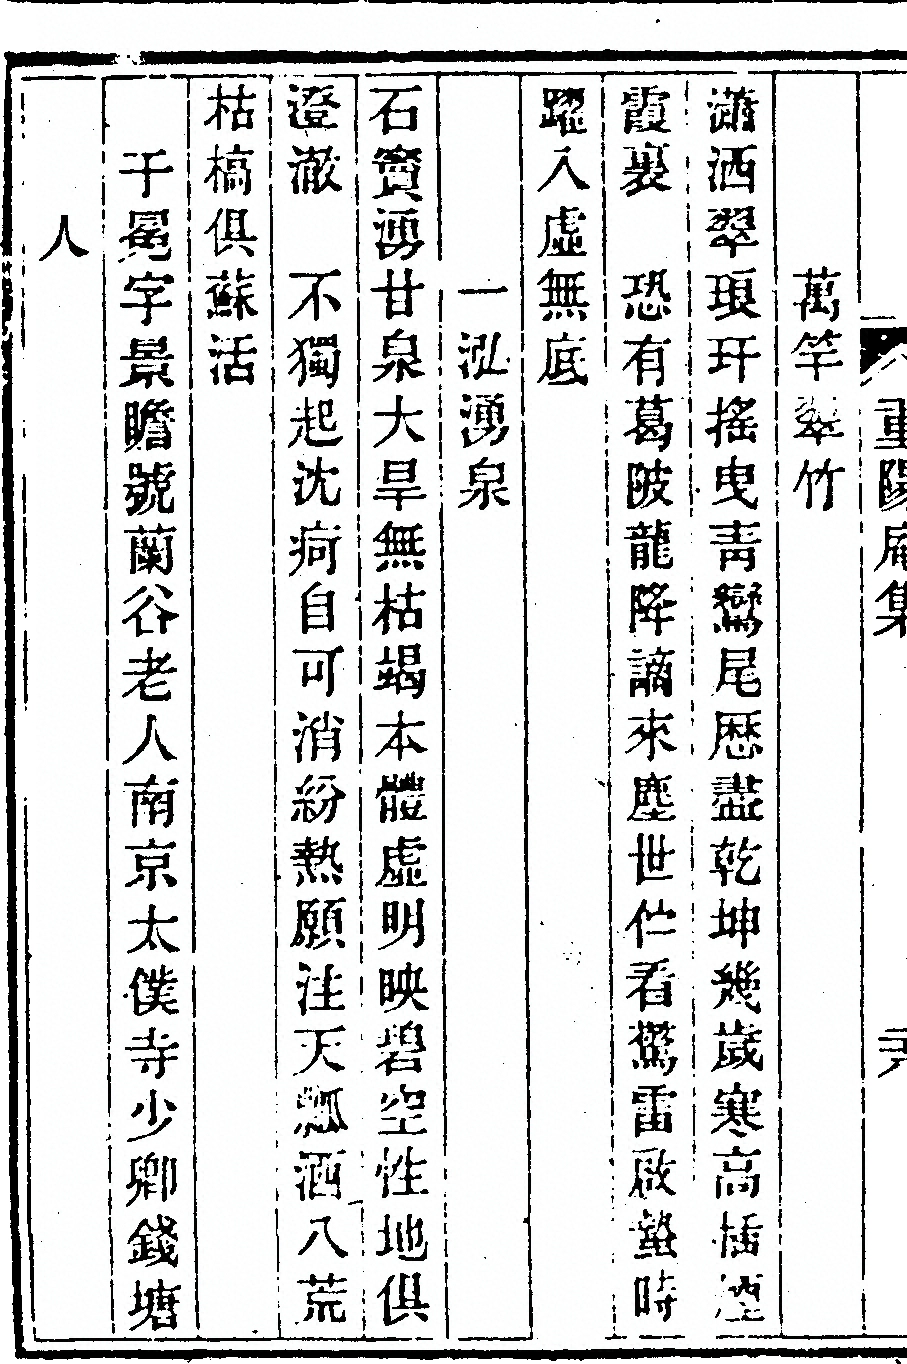 重陽庵集
萬竿翠竹
瀟洒翠琅玕搖曳靑鸞尾歷盡乾坤幾歲寒高插煙
霞裏　恐有葛陂龍降謫來塵世伫看驚雷啟蟄時
躍入虛無底
一泓湧泉
石竇湧甘泉大旱無枯竭本體虛明映碧空性地俱
澄澈　不獨起沈疴自可消紛熱願注天瓢洒八荒
枯槁俱蘇活
于冕字景瞻號蘭谷老人南京太僕寺少卿錢塘
人